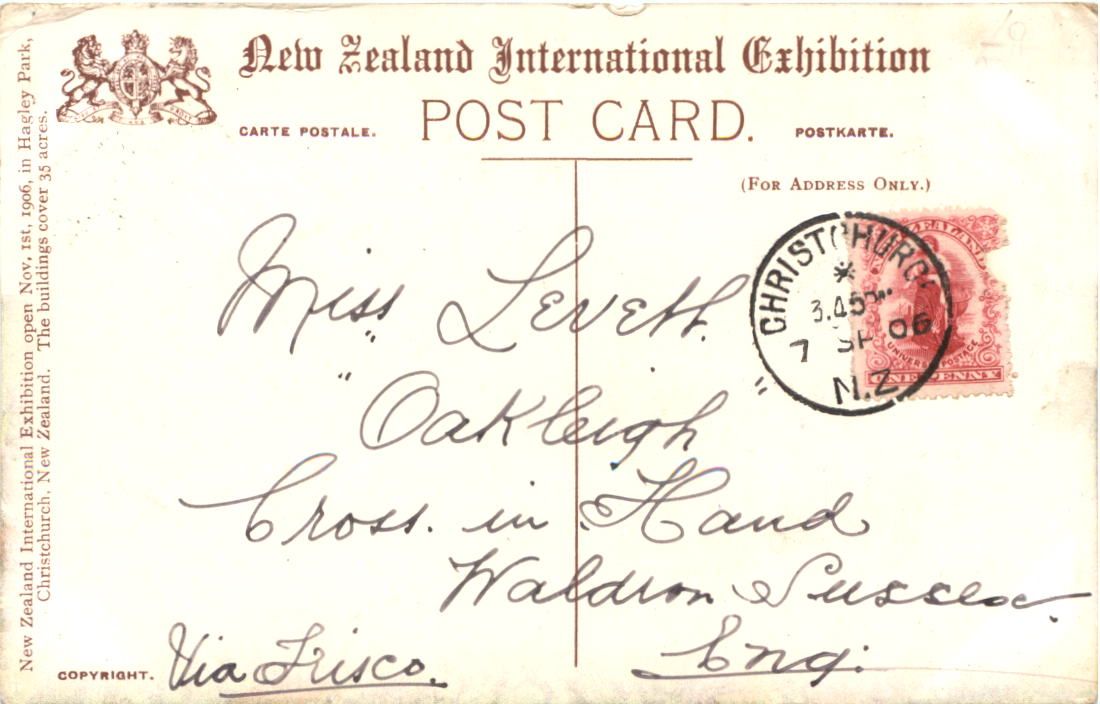 New Zealand International Exhibition
POST CARD.
CARTE POSTALE.
POSTKARTE.
(FOR ADDRESS ONLY.)
New Zealand International Exhibition open Nov. 1st, 1906, in Hagley Park,
Christchurch, New Zealand. The buildings cover 35 acres.
CHRISTCHURC
3.45 PM
7 SP 06
N.Z
ZEALAND
UNIVERSAL POSTAGE
ONE PENNY
Miss Leveth.
"Oakleigh"
Cross. in Hand
Waldron Sussex.
Eng:
Via Frisco.
COPYRIGHT.